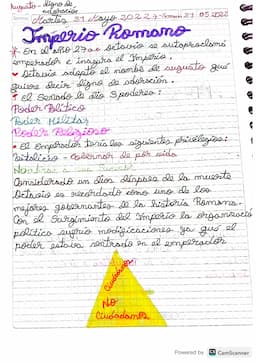 Augusto = digno de
adoración
Martes 31 Mayo 2022
Imperio Romano
* En el año 27 a.c Octavio se autoproclamó
emperador e inaugura el Imperio.
Octavio adoptó el nombre de augusto que
quiere decir digno de adoración.
* El senado le dio 3 poderes:
Poder Político
Poder Militar
Poder Religioso
* El emperador tenía los siguientes privilegios:
Vitalicio - Gobernar de por vida
Nombrar a su
Considerado un dios después de la muerte
Octavio es recordado como uno de los
mejores gobernantes de la historia Romana.
Con el surgimiento del Imperio la organizació
política sufrió modificaciones ya que el
poder estava sentrado en el emperador
Ciudadanos
No
Ciudadanos
Powered by CS CamScanner